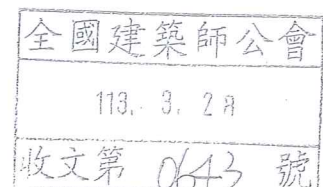 全國建築師公會
113. 3. 28
收文第 0643 號